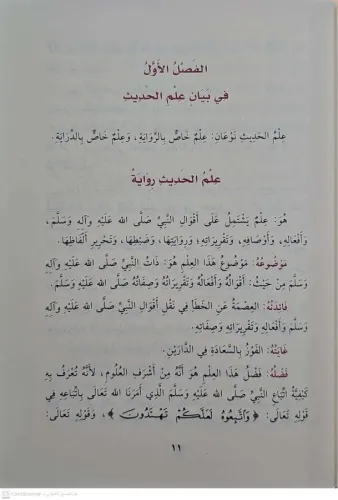 الفَصْلُ الأَوَّلُ
فِي بَيَانِ عِلْمِ الحَدِيثِ
عِلْمُ الحَدِيثِ نَوْعَانِ: عِلْمٌ خَاصٌّ بِالرِّوَايَةِ، وَعِلْمٌ خَاصٌّ بِالدِّرَايَةِ.
عِلْمُ الحَدِيثِ رِوَايَةً
هُوَ: عِلْمٌ يَشْتَمِلُ عَلَى أَقْوَالِ النَّبِيِّ صَلَّى الله عَلَيْهِ وَآلِهِ وَسَلَّمَ،
وَأَفْعَالِهِ، وَأَوْصَافِهِ، وَتَقْرِيرَاتِهِ؛ وَرِوَايَتِهَا، وَضَبْطِهَا، وَتَحْرِيرِ أَلْفَاظِهَا.
مَوْضُوعُهُ: مَوْضُوعُ هَذَا العِلْمِ هُوَ: ذَاتُ النَّبِيِّ صَلَّى الله عَلَيْهِ وَآلِهِ
وَسَلَّمَ مِنْ حَيْثُ: أَقْوَالُهُ وَأَفْعَالُهُ وَتَقْرِيرَاتُهُ وَصِفَاتُهُ صَلَّى الله عَلَيْهِ وَسَلَّمَ.
فَائِدَتُهُ: العِصْمَةُ عَنِ الخَطَأِ فِي نَقْلِ أَقْوَالِ النَّبِيِّ صَلَّى الله عَلَيْهِ
وَسَلَّمَ وَأَفْعَالِهِ وَتَقْرِيرَاتِهِ وَصِفَاتِهِ.
غَايَتُهُ: الفَوْزُ بِالسَّعَادَةِ فِي الدَّارَيْنِ.
فَضْلُهُ: فَضْلُ هَذَا العِلْمِ هُوَ أَنَّهُ مِنْ أَشْرَفِ العُلُومِ، لأَنَّهُ تُعْرَفُ بِهِ
كَيْفِيَّةُ اتِّبَاعِ النَّبِيِّ صَلَّى الله عَلَيْهِ وَسَلَّمَ الَّذِي أَمَرَنَا الله تَعَالَى بِاتِّبَاعِهِ فِي
قَوْلِهِ تَعَالَى: ﴿وَاتَّبِعُوهُ لَعَلَّكُمْ تَهْتَدُونَ﴾، وَقَوْلِهِ تَعَالَى:
١١